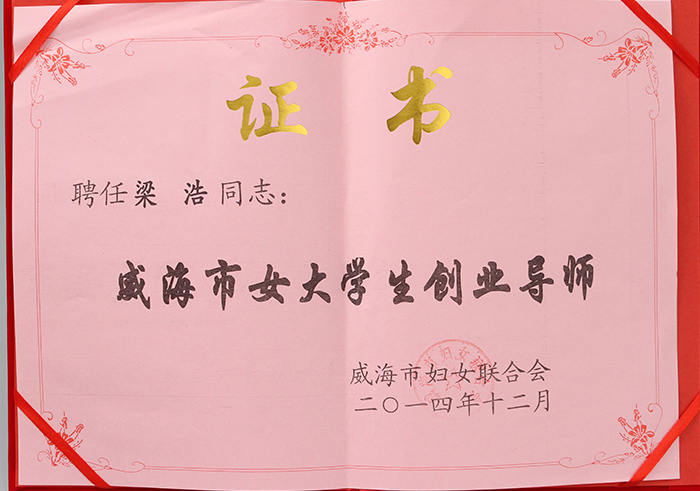 证 书
聘任梁 浩同志：
威海市女大学生创业导师
威海市妇女联合会
二〇一四年十二月